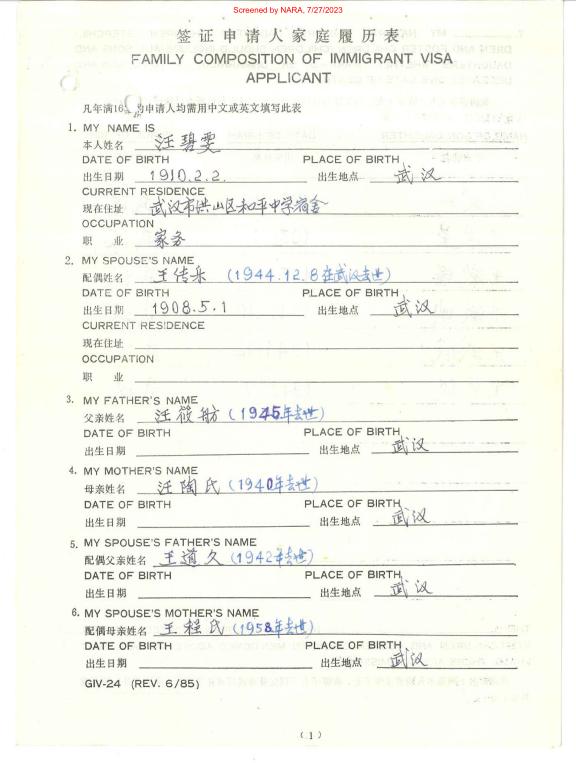 Screened by NARA, 7/27/2023
签证申请人家庭履历表
FAMILY COMPOSITION OF IMMIGRANT VISA
APPLICANT
凡年满16岁的申请人均需用中文或英文填写此表
1. MY NAME IS
本人姓名 汪碧雯
DATE OF BIRTH PLACE OF BIRTH
出生日期 1910.2.2. 出生地点 武汉
CURRENT RESIDENCE
现在住址 武汉市洪山区和平中学宿舍
OCCUPATION
职 业 家务
2. MY SPOUSE'S NAME
配偶姓名 王传乐 (1944.12.8在武汉去世)
DATE OF BIRTH PLACE OF BIRTH
出生日期 1908.5.1 出生地点 武汉
CURRENT RESIDENCE
现在住址
OCCUPATION
职 业
3. MY FATHER'S NAME
父亲姓名 汪筱舫 (1945年去世)
DATE OF BIRTH PLACE OF BIRTH
出生日期 出生地点 武汉
4. MY MOTHER'S NAME
母亲姓名 汪陶氏 (1940年去世)
DATE OF BIRTH PLACE OF BIRTH
出生日期 出生地点 武汉
5. MY SPOUSE'S FATHER'S NAME
配偶父亲姓名 王道久 (1942年去世)
DATE OF BIRTH PLACE OF BIRTH
出生日期 出生地点 武汉
6. MY SPOUSE'S MOTHER'S NAME
配偶母亲姓名 王程氏 (1958年去世)
DATE OF BIRTH PLACE OF BIRTH
出生日期 出生地点 武汉
GIV-24 (REV. 6/85)
(1)